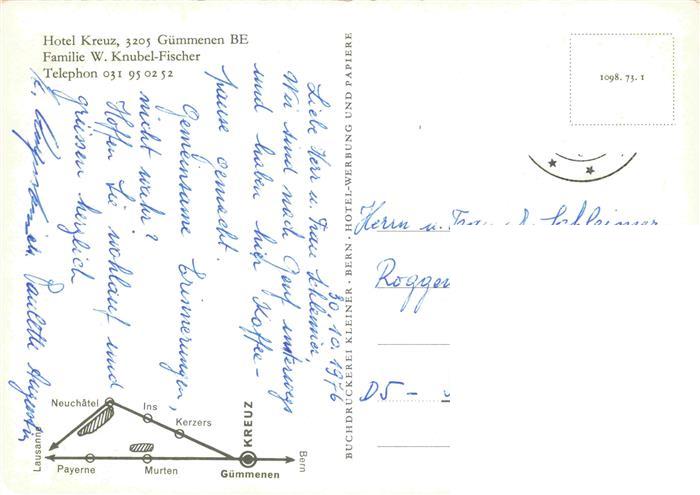 Hotel Kreuz, 3205 Gümmenen BE
Familie W. Knubel-Fischer
Telephon 031 95 02 52
30.10.1976
Liebe Herr u. Frau Schlemmer,
Wir sind nach Genf unterwegs
und haben hier Kaffee-
pause gemacht.
Gemeinsame Erinnerungen,
nicht wahr?
Hoffen Sie wohlauf und
grüssen herzlich
Paulette Augustin
BUCHDRUCKEREI KLEINER · BERN · HOTEL-WERBUNG UND PAPIERE
1098. 73. 1
Herrn u. Frau
Roggen
D5 -
Neuchâtel
Ins
Kerzers
KREUZ
Lausanne
Payerne
Murten
Gümmenen
Bern